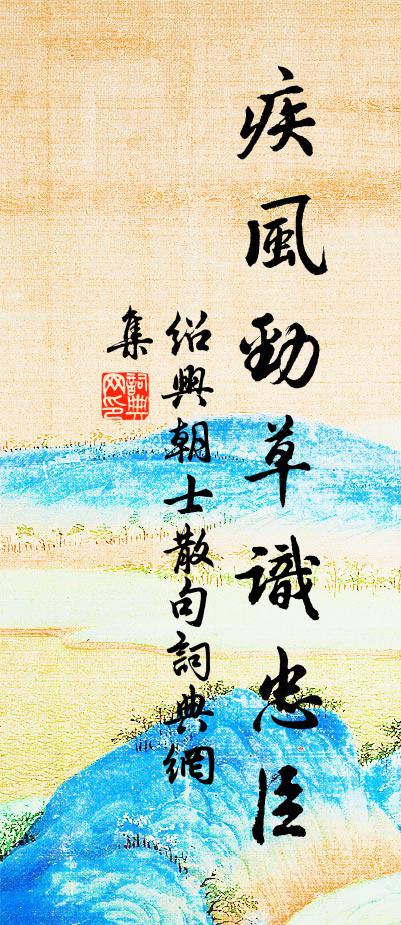 疾風勁草識忠臣
紹興朝士散句詞典網
集
詞典
网印